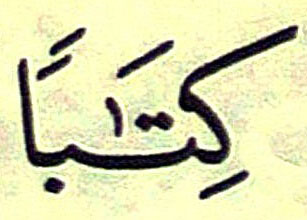 كِتَٰبًا